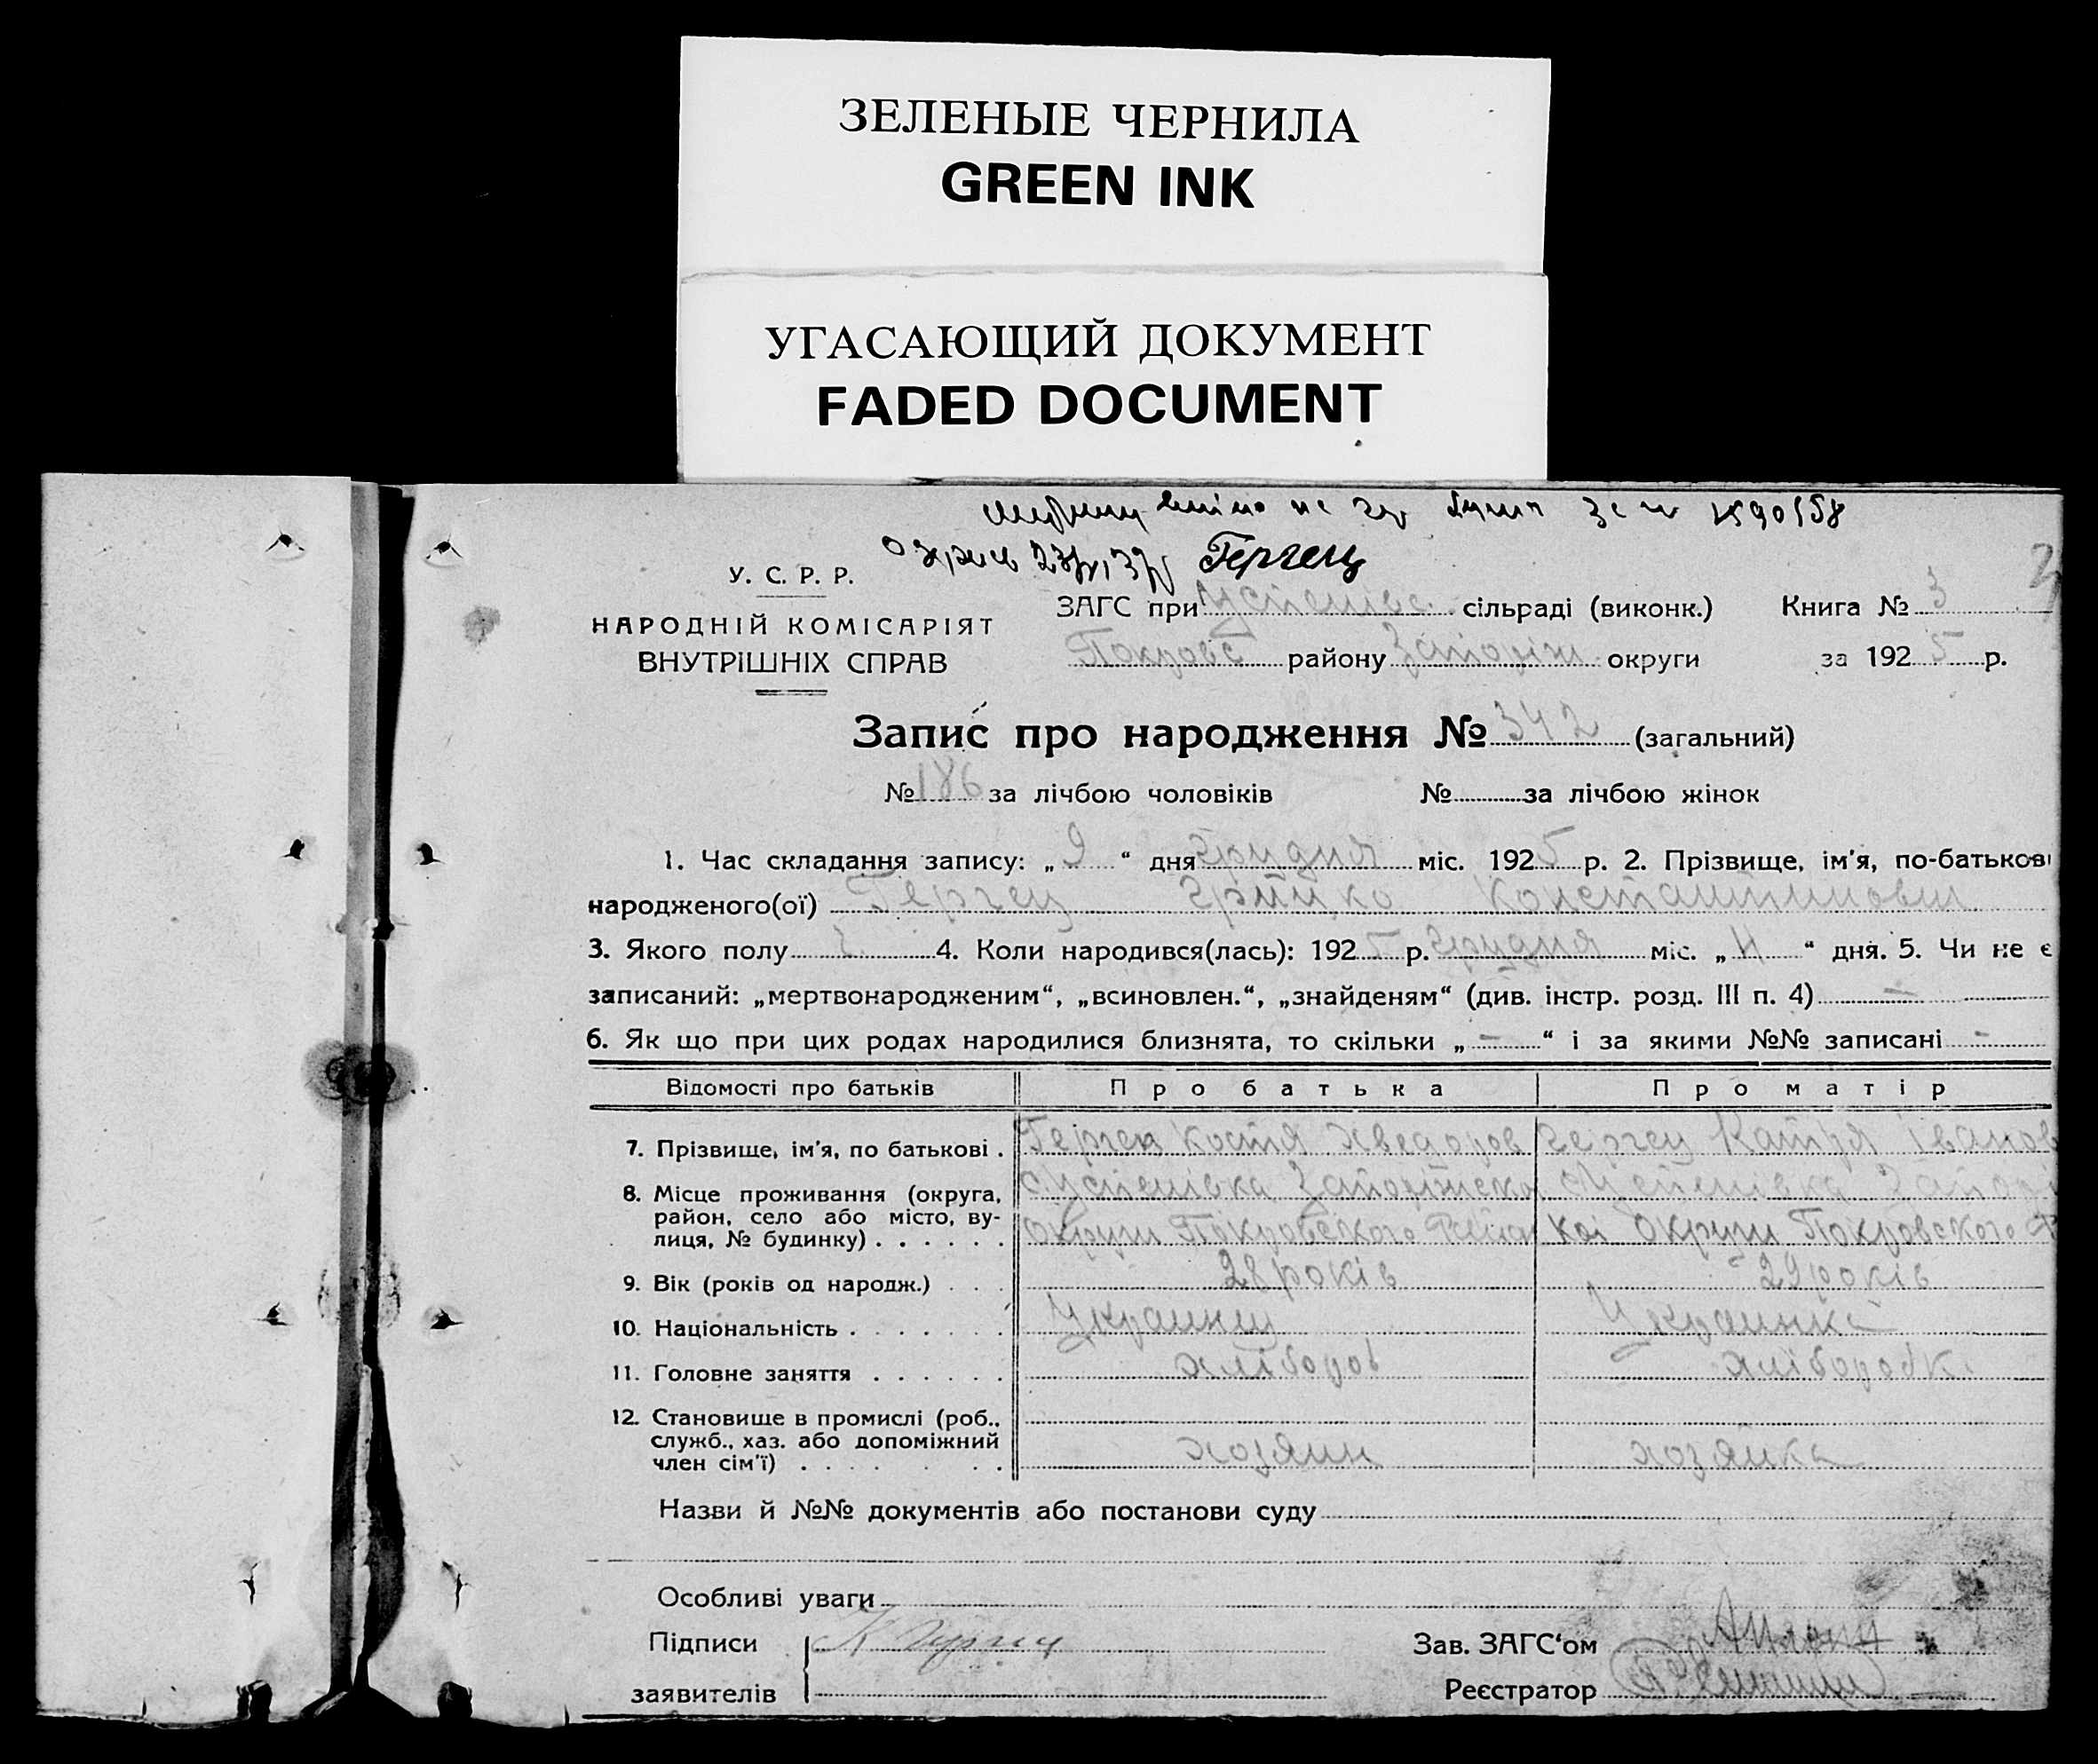 ЗЕЛЕНЫЕ ЧЕРНИЛА
GREEN INK
УГАСАЮЩИЙ ДОКУМЕНТ
FADED DOCUMENT
Гергец
У. С. Р. Р.
НАРОДНІЙ КОМІСАРІЯТ
ВНУТРІШНІХ СПРАВ
ЗАГС при Успенівс. сільраді (виконк.) Книга № 3
Покровс району Запоріж. округи за 1925 р.
Запис про народження № 342 (загальний)
№ 186 за лічбою чоловіків № за лічбою жінок
1. Час складання запису: „9“ дня грудня міс. 1925 р. 2. Прізвище, ім'я, по-батькові
народженого(ої) Гергец Грицко Константинович
3. Якого полу ч. 4. Коли народився(лась): 1925 р. грудня міс. „4“ дня. 5. Чи не є
записаний: „мертвонародженим“, „всиновлен.“, „знайденям“ (див. інстр. розд. III п. 4) –
6. Як що при цих родах народилися близнята, то скільки „–“ і за якими №№ записані -
Відомості про батьків Про батька Про матір
7. Прізвище, ім'я, по батькові . Гергец Костя Хведоров Гергец Катря Іванов
8. Місце проживання (округа, Успенівка Запоріжско Успенівка Запорі
район, село або місто, ву-
лиця, № будинку) . . . . . . Округи Покровского Району кої Округи Покровского Р
9. Вік (років од народж.) . . . 28 років 29 років
10. Національність . . . . . . . Украинец Украинка
11. Головне заняття . . . . . . хлібороб хліборобк.
12. Становище в промислі (роб.,
служб., хаз. або допоміжний
член сім'ї) . . . . . . . хозяин хозяйка
Назви й №№ документів або постанови суду
Особливі уваги
Підписи К Гергец Зав. ЗАГС'ом
заявителів Реєстратор